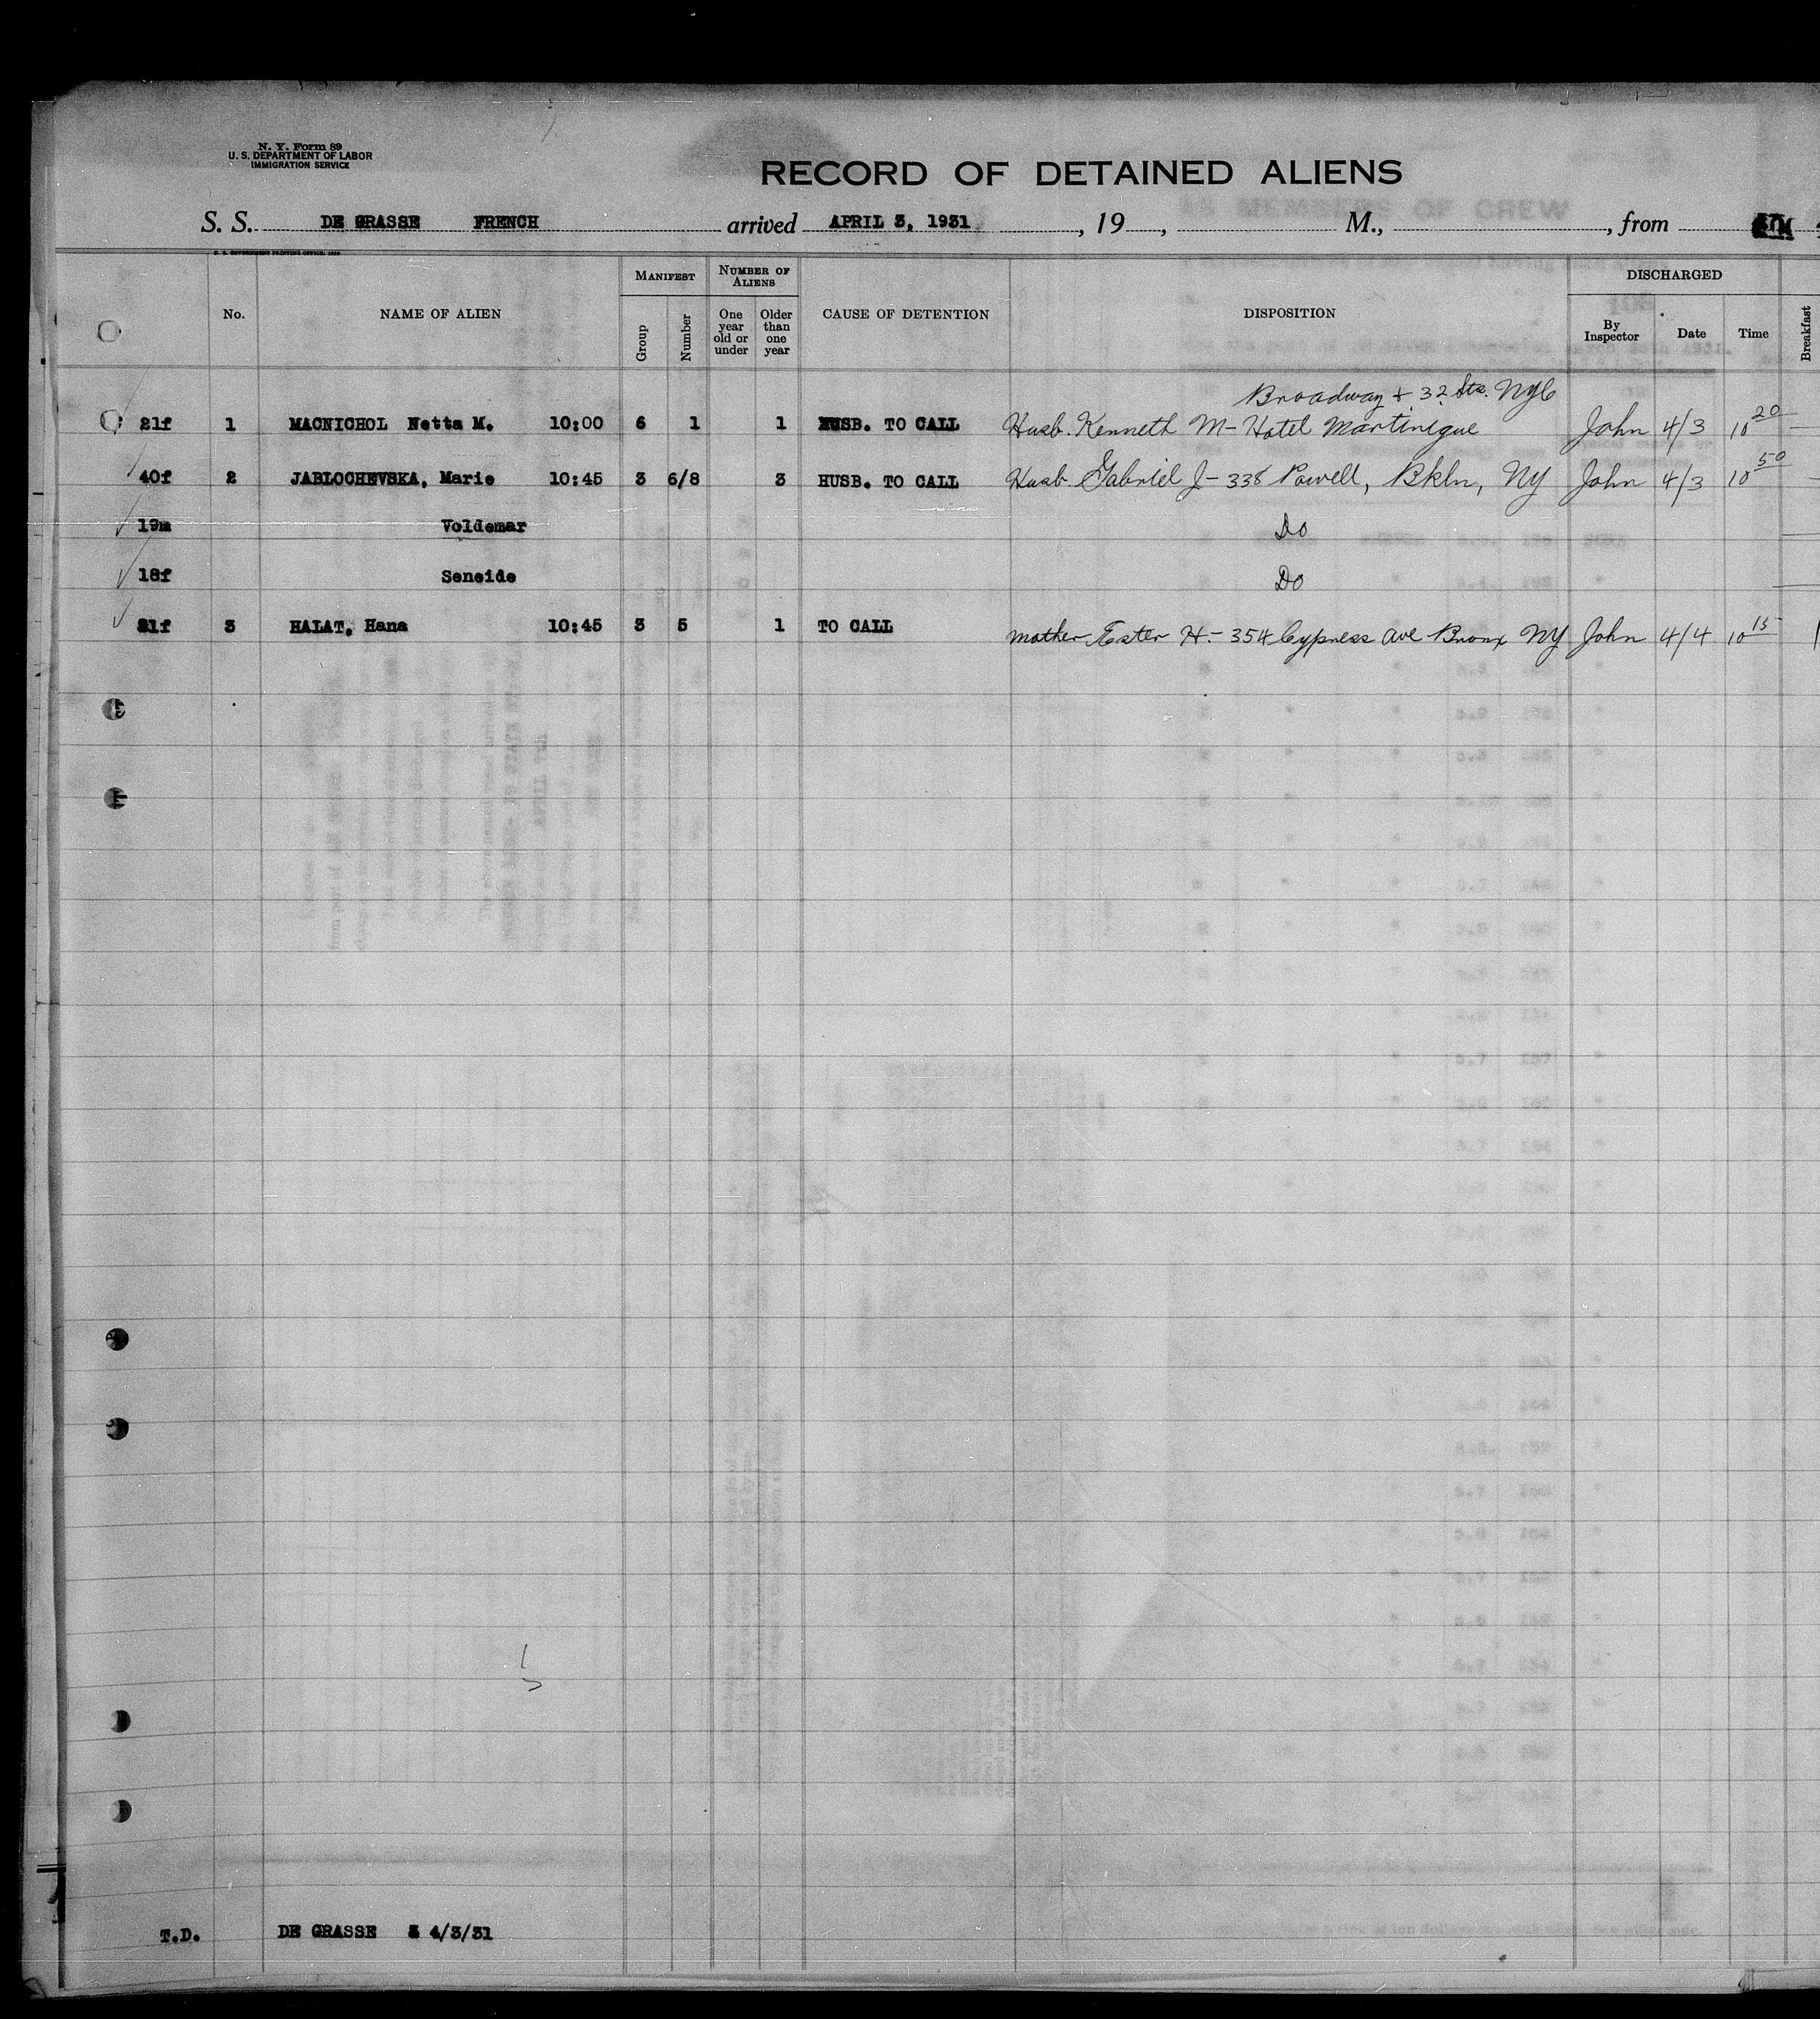 N. Y. Form 89
U. S. DEPARTMENT OF LABOR
IMMIGRATION SERVICE
RECORD OF DETAINED ALIENS
S. S. DE GRASSE FRENCH arrived APRIL 3, 1931 , 19 , M., , from
No. NAME OF ALIEN MANIFEST Group Number NUMBER OF ALIENS One year old or under Older than one year CAUSE OF DETENTION DISPOSITION DISCHARGED By Inspector Date Time Breakfast
Broadway + 32 Sts. NYC
21f 1 MACNICHOL Netta M. 10:00 6 1 1 HUSB. TO CALL Husb. Kenneth M- Hotel Martinique John 4/3 10 20
40f 2 JABLOCHEVSKA, Marie 10:45 3 6/8 3 HUSB. TO CALL Husb. Gabriel J- 338 Powell, Bkln, NY John 4/3 10 50
19m Voldemar Do
18f Seneide Do
21f 3 HALAT, Hana 10:45 3 5 1 TO CALL mother Ester H- 354 Cypress Ave Bronx NY John 4/4 10 15
T.D. DE GRASSE 4/3/31